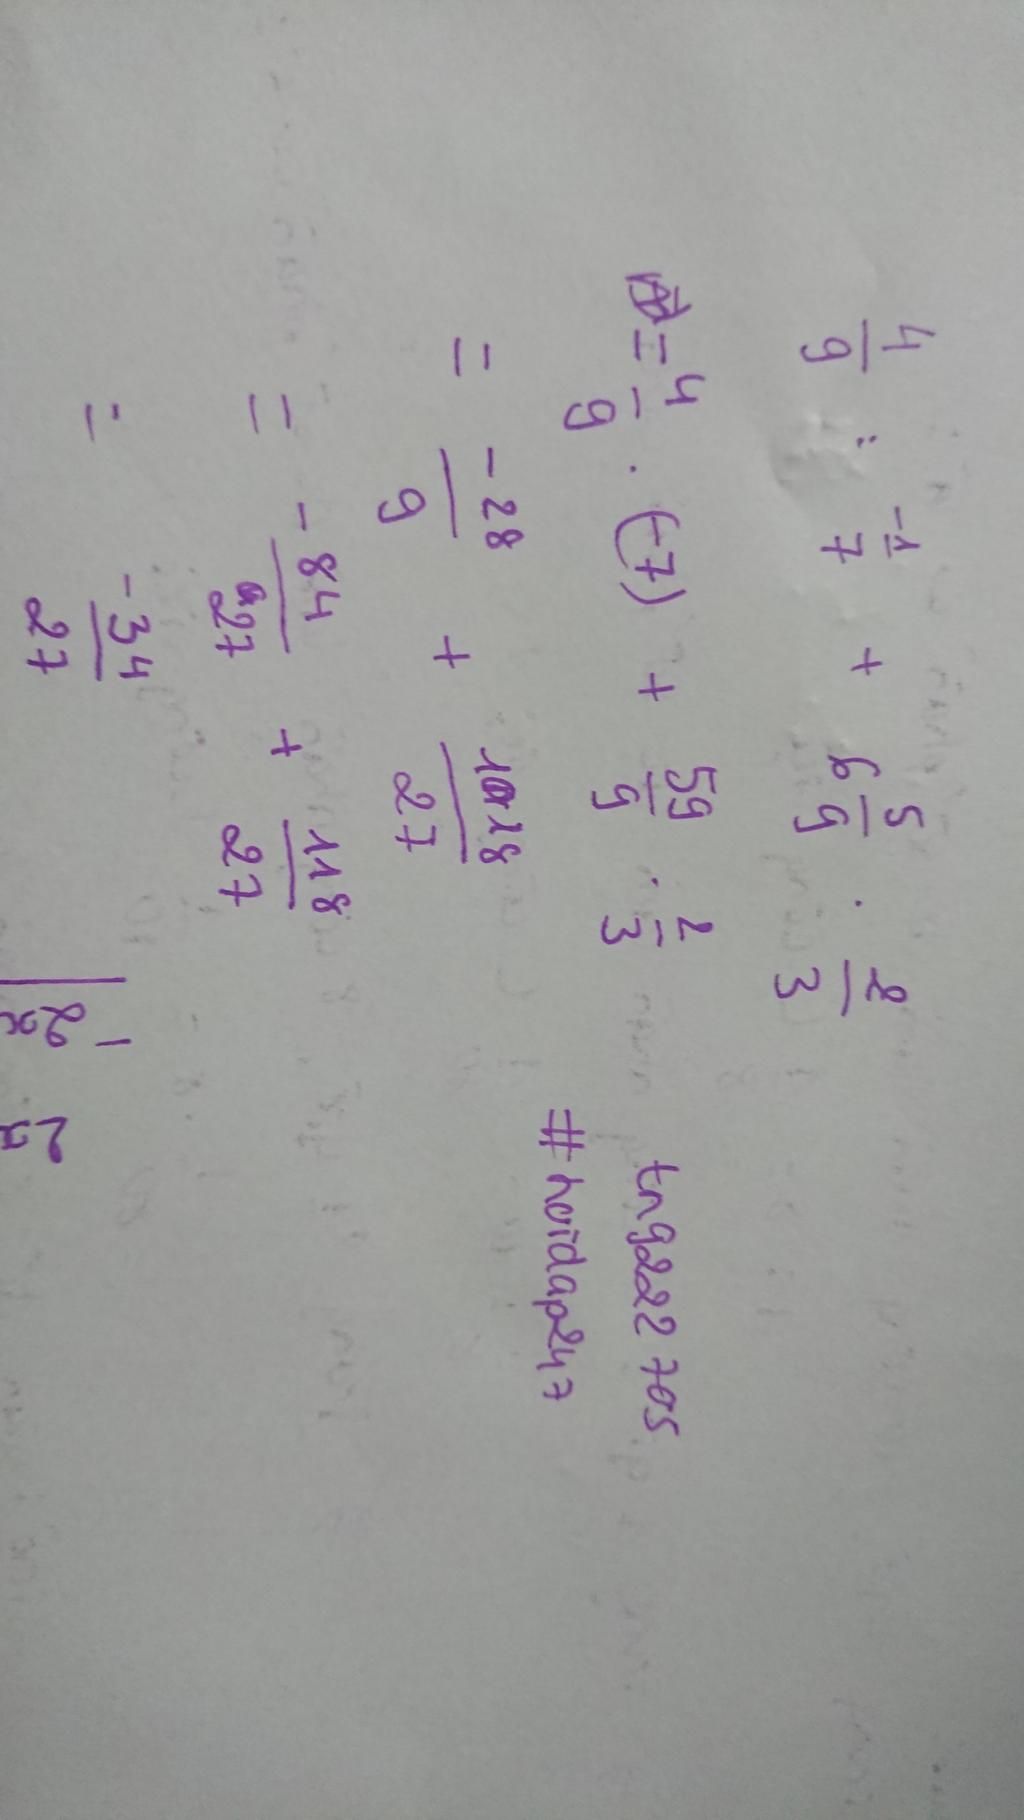 4/9 : -1/7 + 6 5/9 . 2/3
= 4/9 . (-7) + 59/9 . 2/3
= -28/9 + 118/27
= -84/27 + 118/27
= -34/27
tng222705
#hoidap247